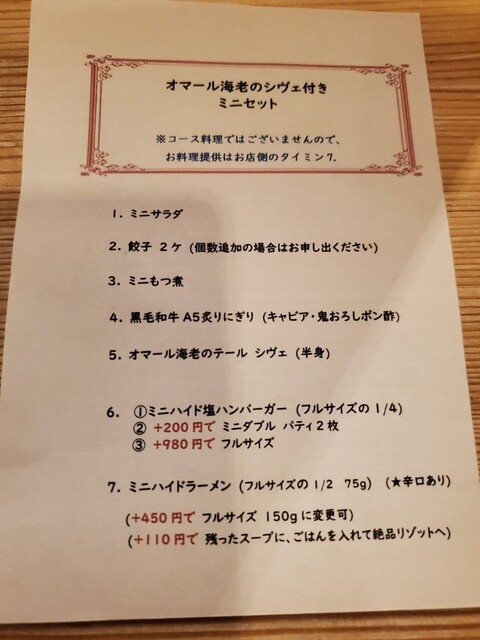 オマール海老のシヴェ付き
ミニセット
※コース料理ではございませんので、
お料理提供はお店側のタイミング.
1. ミニサラダ
2. 餃子 2ケ (個数追加の場合はお申し出ください)
3. ミニもつ煮
4. 黒毛和牛 A5炙りにぎり (キャビア・鬼おろしポン酢)
5. オマール海老のテール シヴェ (半身)
6. ①ミニハイド塩ハンバーガー (フルサイズの 1/4)
② +200円で ミニダブル パティ2枚
③ +980円で フルサイズ
7. ミニハイドラーメン (フルサイズの 1/2 75g) (★辛口あり)
(+450円で フルサイズ 150gに変更可)
(+110円で 残ったスープに、ごはんを入れて絶品リゾットへ)